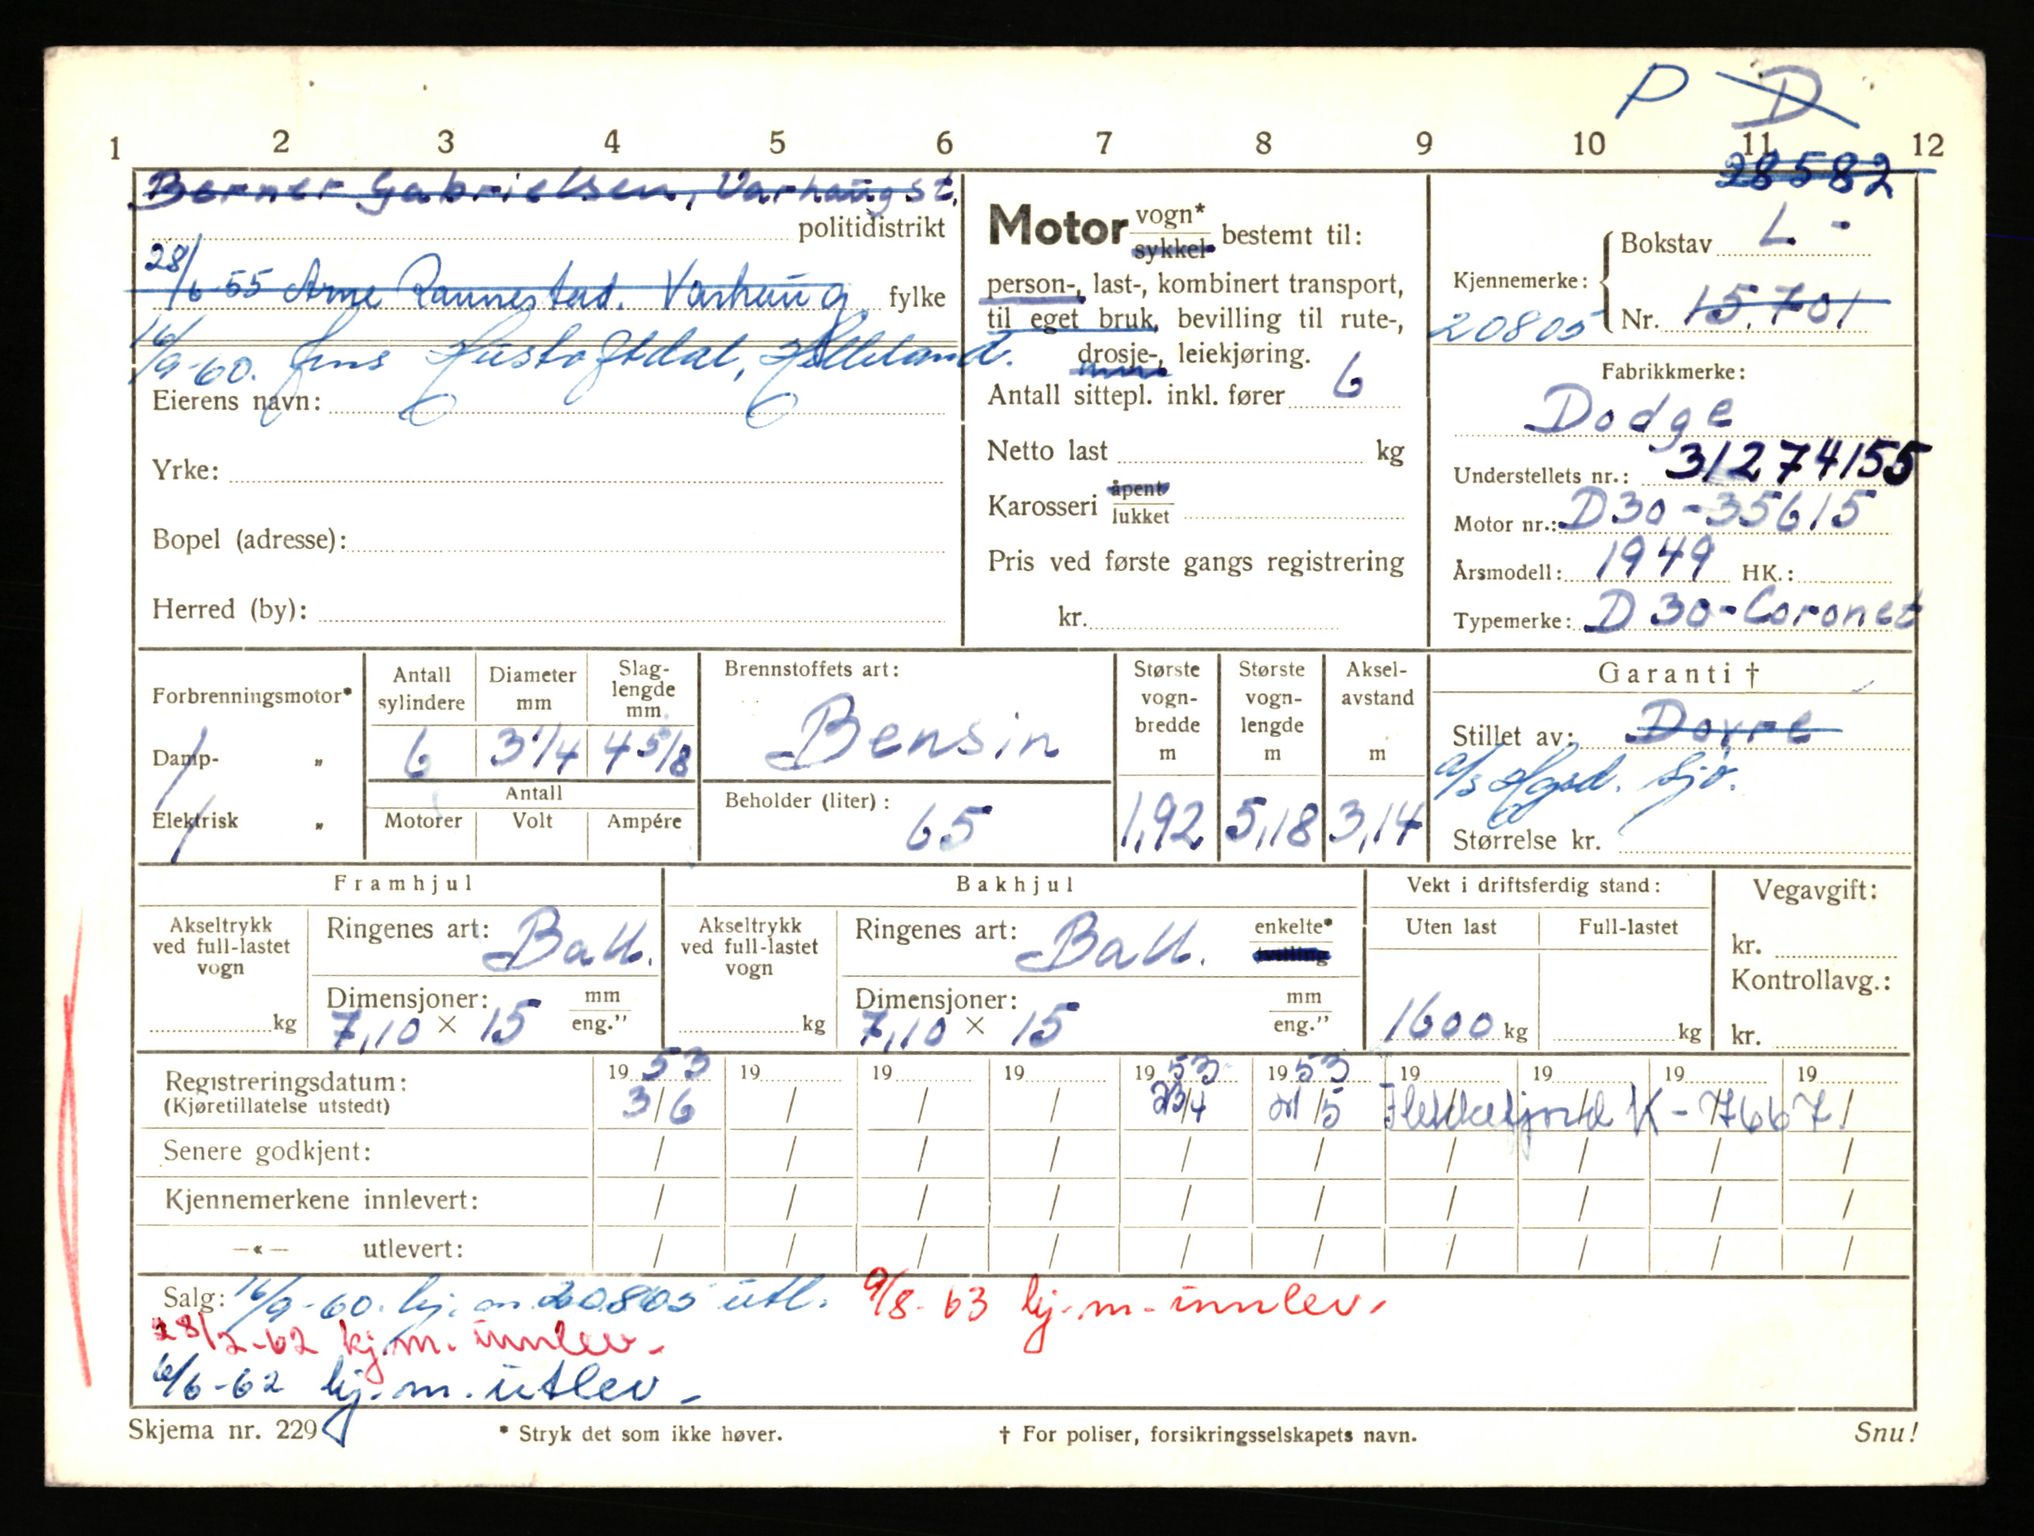 P D
1 2 3 4 5 6 7 8 9 10 11 12
28582
Berner Gabrielsen, Varhaugst.
politidistrikt
28/6-55 Arne Rannestad. Varhaug
fylke
16/9-60. Jens Hustoftdal, Helleland.
Eierens navn:
Yrke:
Bopel (adresse):
Herred (by):
Motor vogn* sykkel bestemt til:
person-, last-, kombinert transport,
til eget bruk, bevilling til rute-,
drosje-, leiekjøring.
Antall sittepl. inkl. fører 6
Netto last kg
Karosseri åpent lukket
Pris ved første gangs registrering
kr.
Kjennemerke: Bokstav L -
Nr. 15.701
20805
Fabrikkmerke:
Dodge
Understellets nr.: 31274155
Motor nr.: D30-35615
Årsmodell: 1949 HK.:
Typemerke: D 30-Coronet
Forbrenningsmotor*
Damp- „
Elektrisk „
Antall sylindere Diameter mm Slag-lengde mm
6 3 1/4 4 5/8
Antall
Motorer Volt Ampére
Brennstoffets art:
Bensin
Beholder (liter):
65
Største vogn-bredde m
1,92
Største vogn-lengde m
5,18
Aksel-avstand m
3,14
Garanti †
Stillet av: Dovre
a/s Hgsd. Sjø.
Størrelse kr.
Framhjul
Akseltrykk ved full-lastet vogn
kg
Ringenes art: Ball.
Dimensjoner: mm eng."
7,10 × 15
Bakhjul
Akseltrykk ved full-lastet vogn
kg
Ringenes art: Ball. enkelte* tvilling
Dimensjoner: mm eng."
7,10 × 15
Vekt i driftsferdig stand:
Uten last Full-lastet
1600 kg kg
Vegavgift:
kr.
Kontrollavg.:
kr.
Registreringsdatum: 19 53 19 19 19 19 53 19 53 19 19 19 19
(Kjøretillatelse utstedt) 3/6 / / / 23/4 21/5 Flekkefjord K-7667
Senere godkjent: / / / / / / / / / /
Kjennemerkene innlevert: / / / / / / / / / /
—«— utlevert: / / / / / / / / / /
Salg: 16/9-60. kj.m. 20805 utl. 9/8-63 kj.m. innlev.
28/2-62 kj.m. innlev.
6/6-62 kj.m. utlev.
Skjema nr. 229 * Stryk det som ikke høver. † For poliser, forsikringsselskapets navn. Snu!